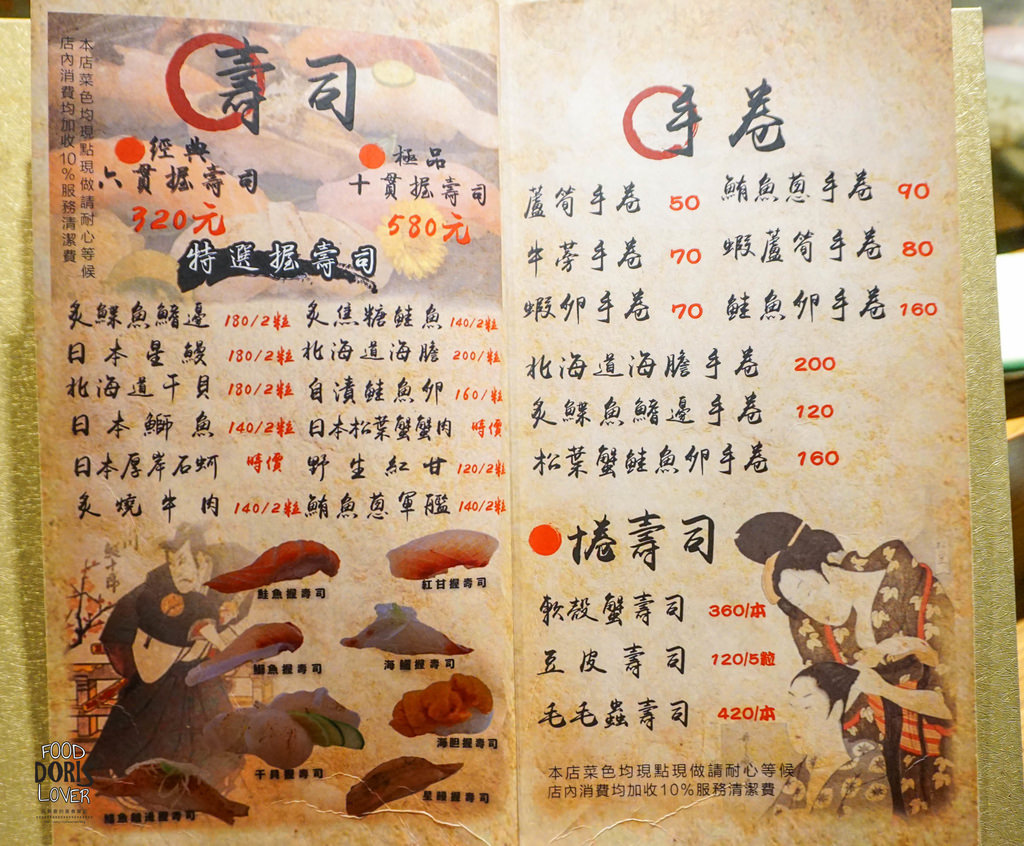 本店菜色均現點現做請耐心等候
店內消費均加收10%服務清潔費
壽司
經典
六貫握壽司
320元
極品
十貫握壽司
580元
特選握壽司
炙鰈魚鰭邊 180/2粒 炙焦糖鮭魚 140/2粒
日本星鰻 180/2粒 北海道海膽 200/粒
北海道干貝 180/2粒 自漬鮭魚卵 160/粒
日本鰤魚 140/2粒 日本松葉蟹蟹肉 時價
日本厚岸石蚵 時價 野生紅甘 120/2粒
炙燒牛肉 140/2粒 鮪魚蔥軍艦 140/2粒
鮭魚握壽司
紅甘握壽司
鰤魚握壽司
海鱺握壽司
干貝握壽司
海胆握壽司
鰈魚鰭邊握壽司
星鰻握壽司
手卷
蘆筍手卷 50 鮪魚蔥手卷 90
牛蒡手卷 70 蝦蘆筍手卷 80
蝦卵手卷 70 鮭魚卵手卷 160
北海道海膽手卷 200
炙鰈魚鰭邊手卷 120
松葉蟹鮭魚卵手卷 160
捲壽司
軟殼蟹壽司 360/本
豆皮壽司 120/5粒
毛毛蟲壽司 420/本
本店菜色均現點現做請耐心等候
店內消費均加收10%服務清潔費
FOOD
DORIS
LOVER